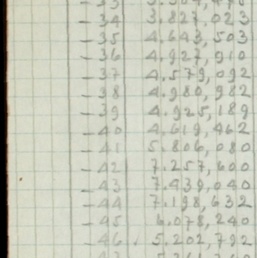 -34 3.827,023
-35 4.643,503
-36 4.927,910
-37 4.579,092
-38 4.980,982
-39 4.925,189
-40 4.619,462
-41 5.806,080
-42 7.257,600
-43 7.439,040
-44 7.198,632
-45 6.078,240
-46 5.202,792